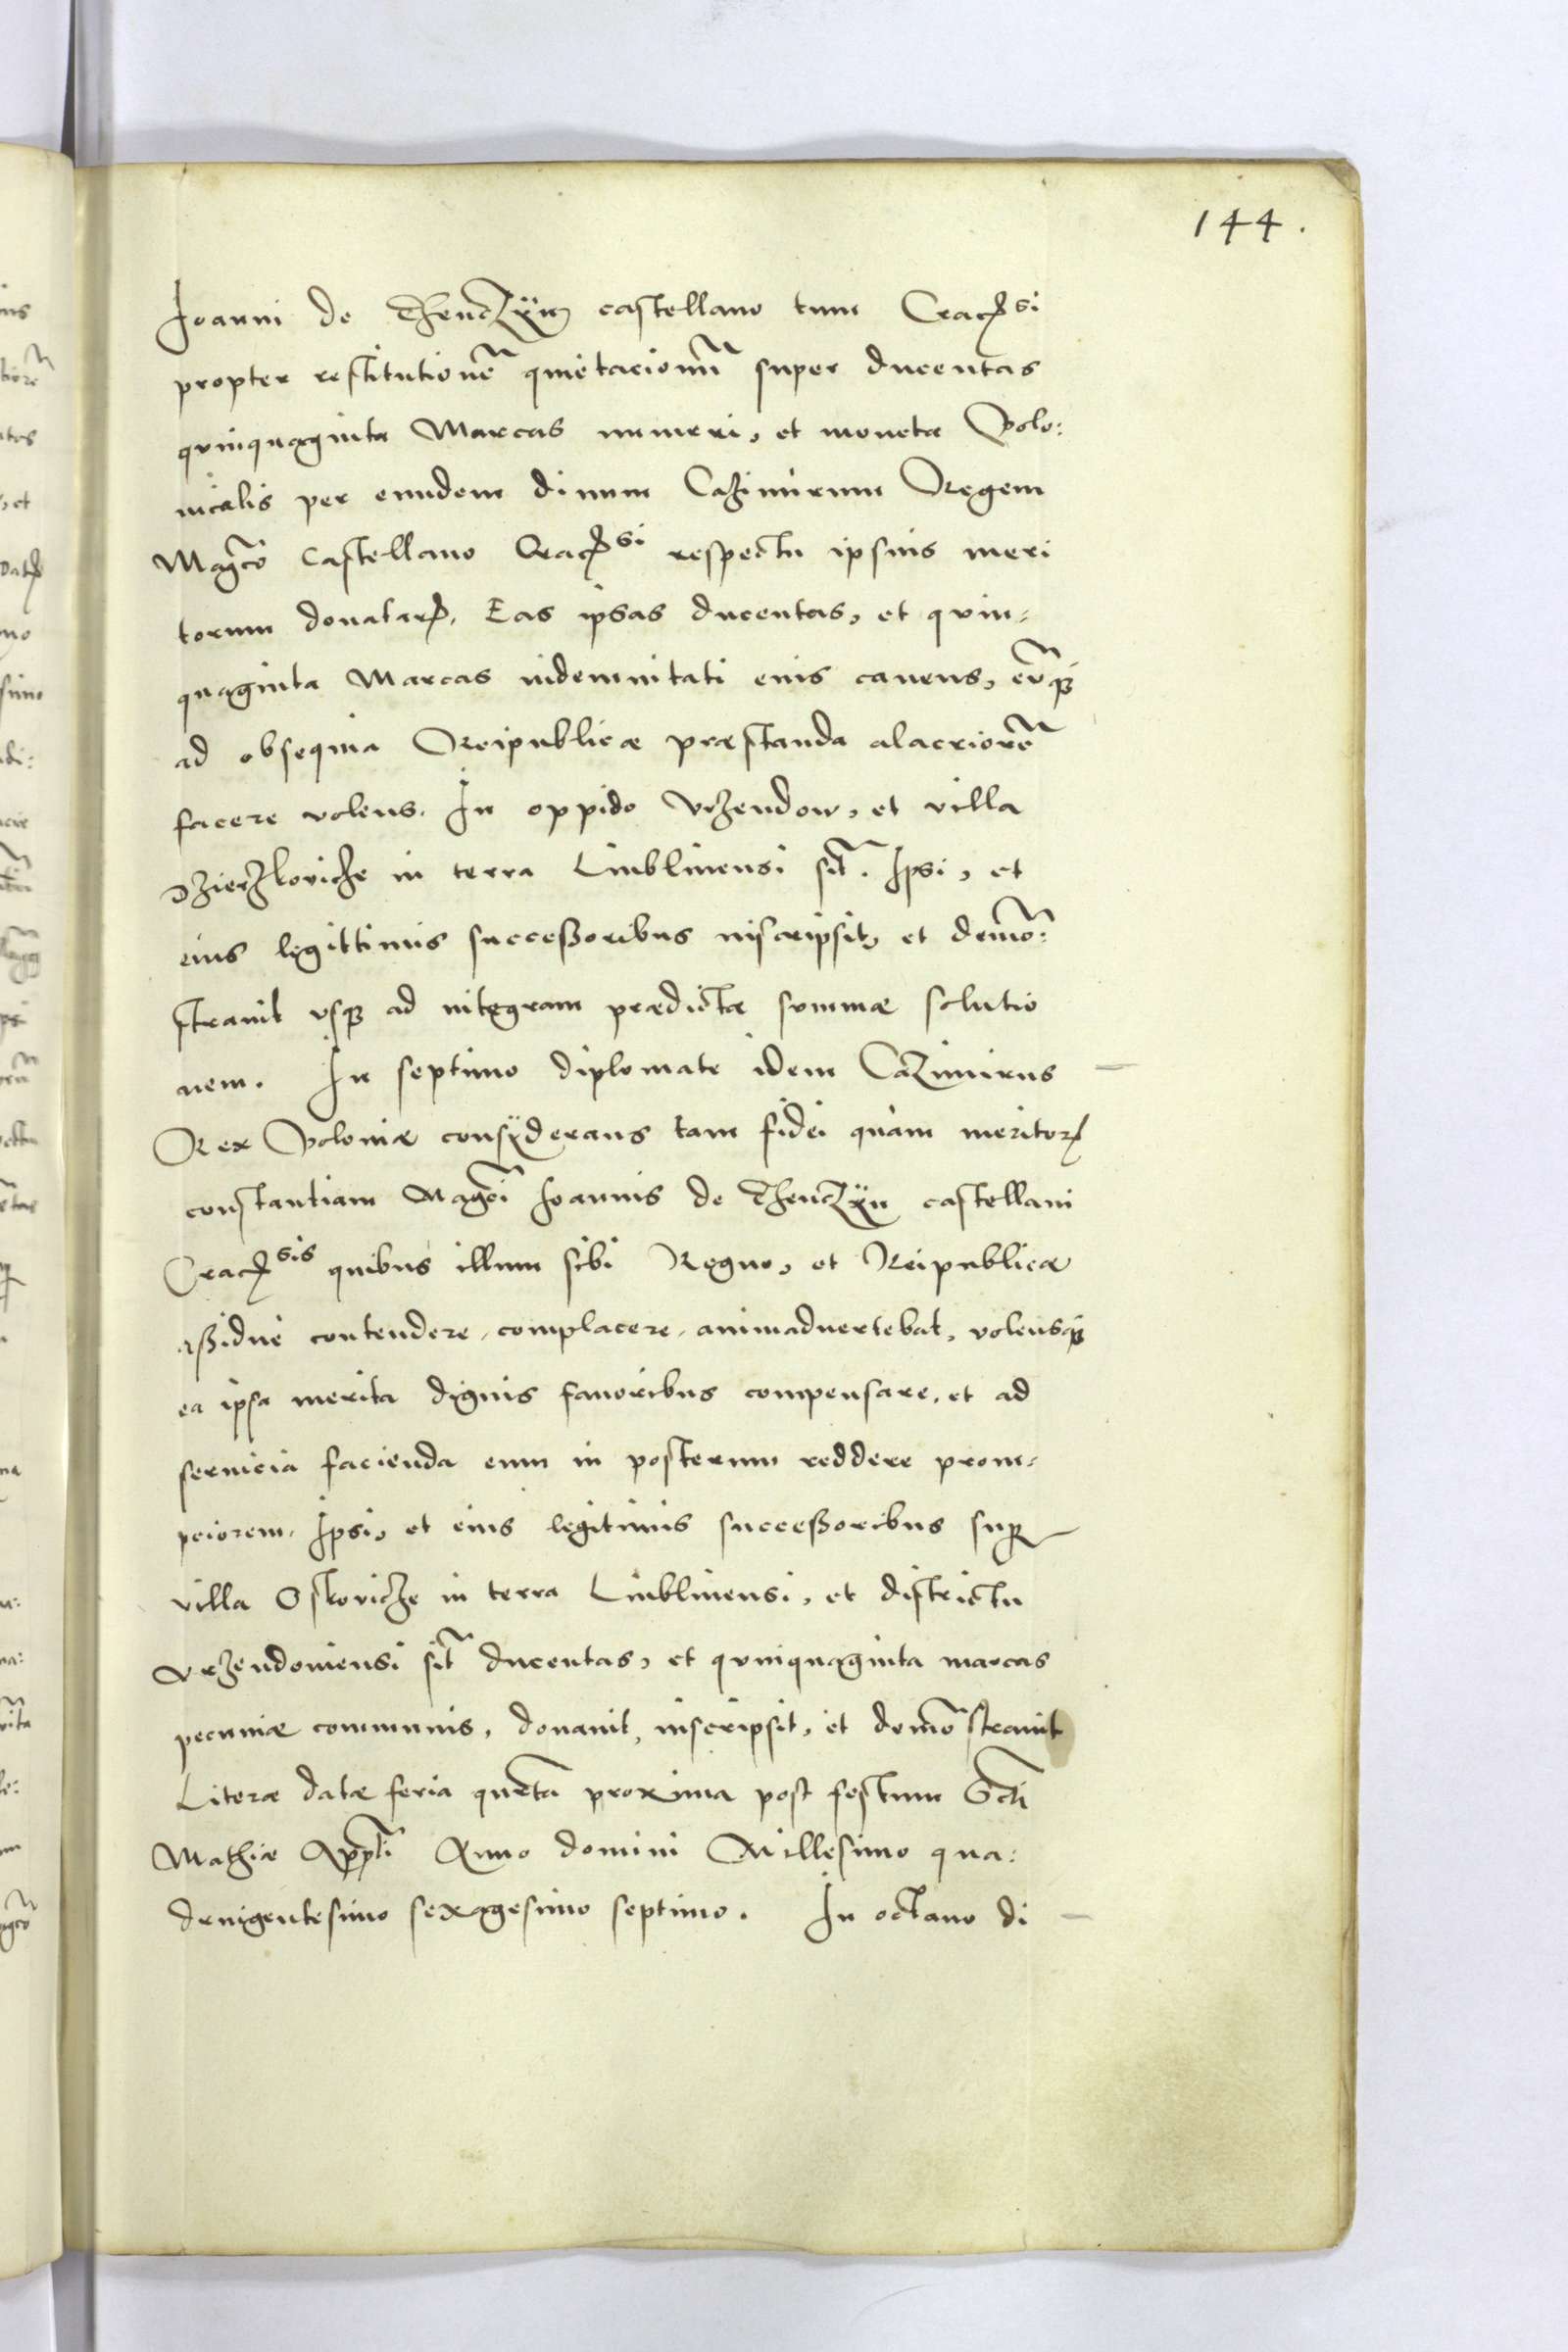 144.
Joanni de Thenczÿn castellano tum Cracꝭsi
propter restitutionē quietacionū super ducentas
quinquaginta Marcas numeri, et moneta Polo:
nicalis per eundem diuum Cazimirum Regem
Magcō Castellano Cracꝭsi respectu ipsius meri
torum donatarꝭ. Eas ipsas ducentas, et quin-
quaginta Marcas indemnitati eius cauens, eūqꝫ
ad obsequia Reipublicæ præstanda alacriorē
facere volens. In oppido Vrzendow, et villa
Dzierzkovicze in terra Lublinensi sit̃. Ipsi, et
eius legittimis successoribus inscripsit, et demō:
strauit vsqꝫ ad integram prædictæ summæ solutio
nem. In septimo diplomate idem Cazimirus
Rex Poloniæ consÿderans tam fidei quàm meritorꝭ
constantiam Magci Joannis de Thenczÿn castellani
Cracꝭsis quibus illum sibi Regno, et Reipublicæ
assidue contendere, complacere, animaduertebat, volensqꝫ
ea ipsa merita dignis fauoribus compensare, et ad
seruicia facienda eum in posterum reddere prom-
pciorem, Ipsi, et eius legitimis successoribus suꝑ
villa Oskovicze in terra Lublinensi, et districtu
Vrzendouiensi sit̃ ducentas, et quinquaginta marcas
pecuniæ communis, donauit, inscripsit, et demō strauit
Literæ datæ feria quīta proxima post festum Scti
Mathiæ Appli Anno domini Millesimo qua:
dringentesimo sexagesimo septimo. In octauo di